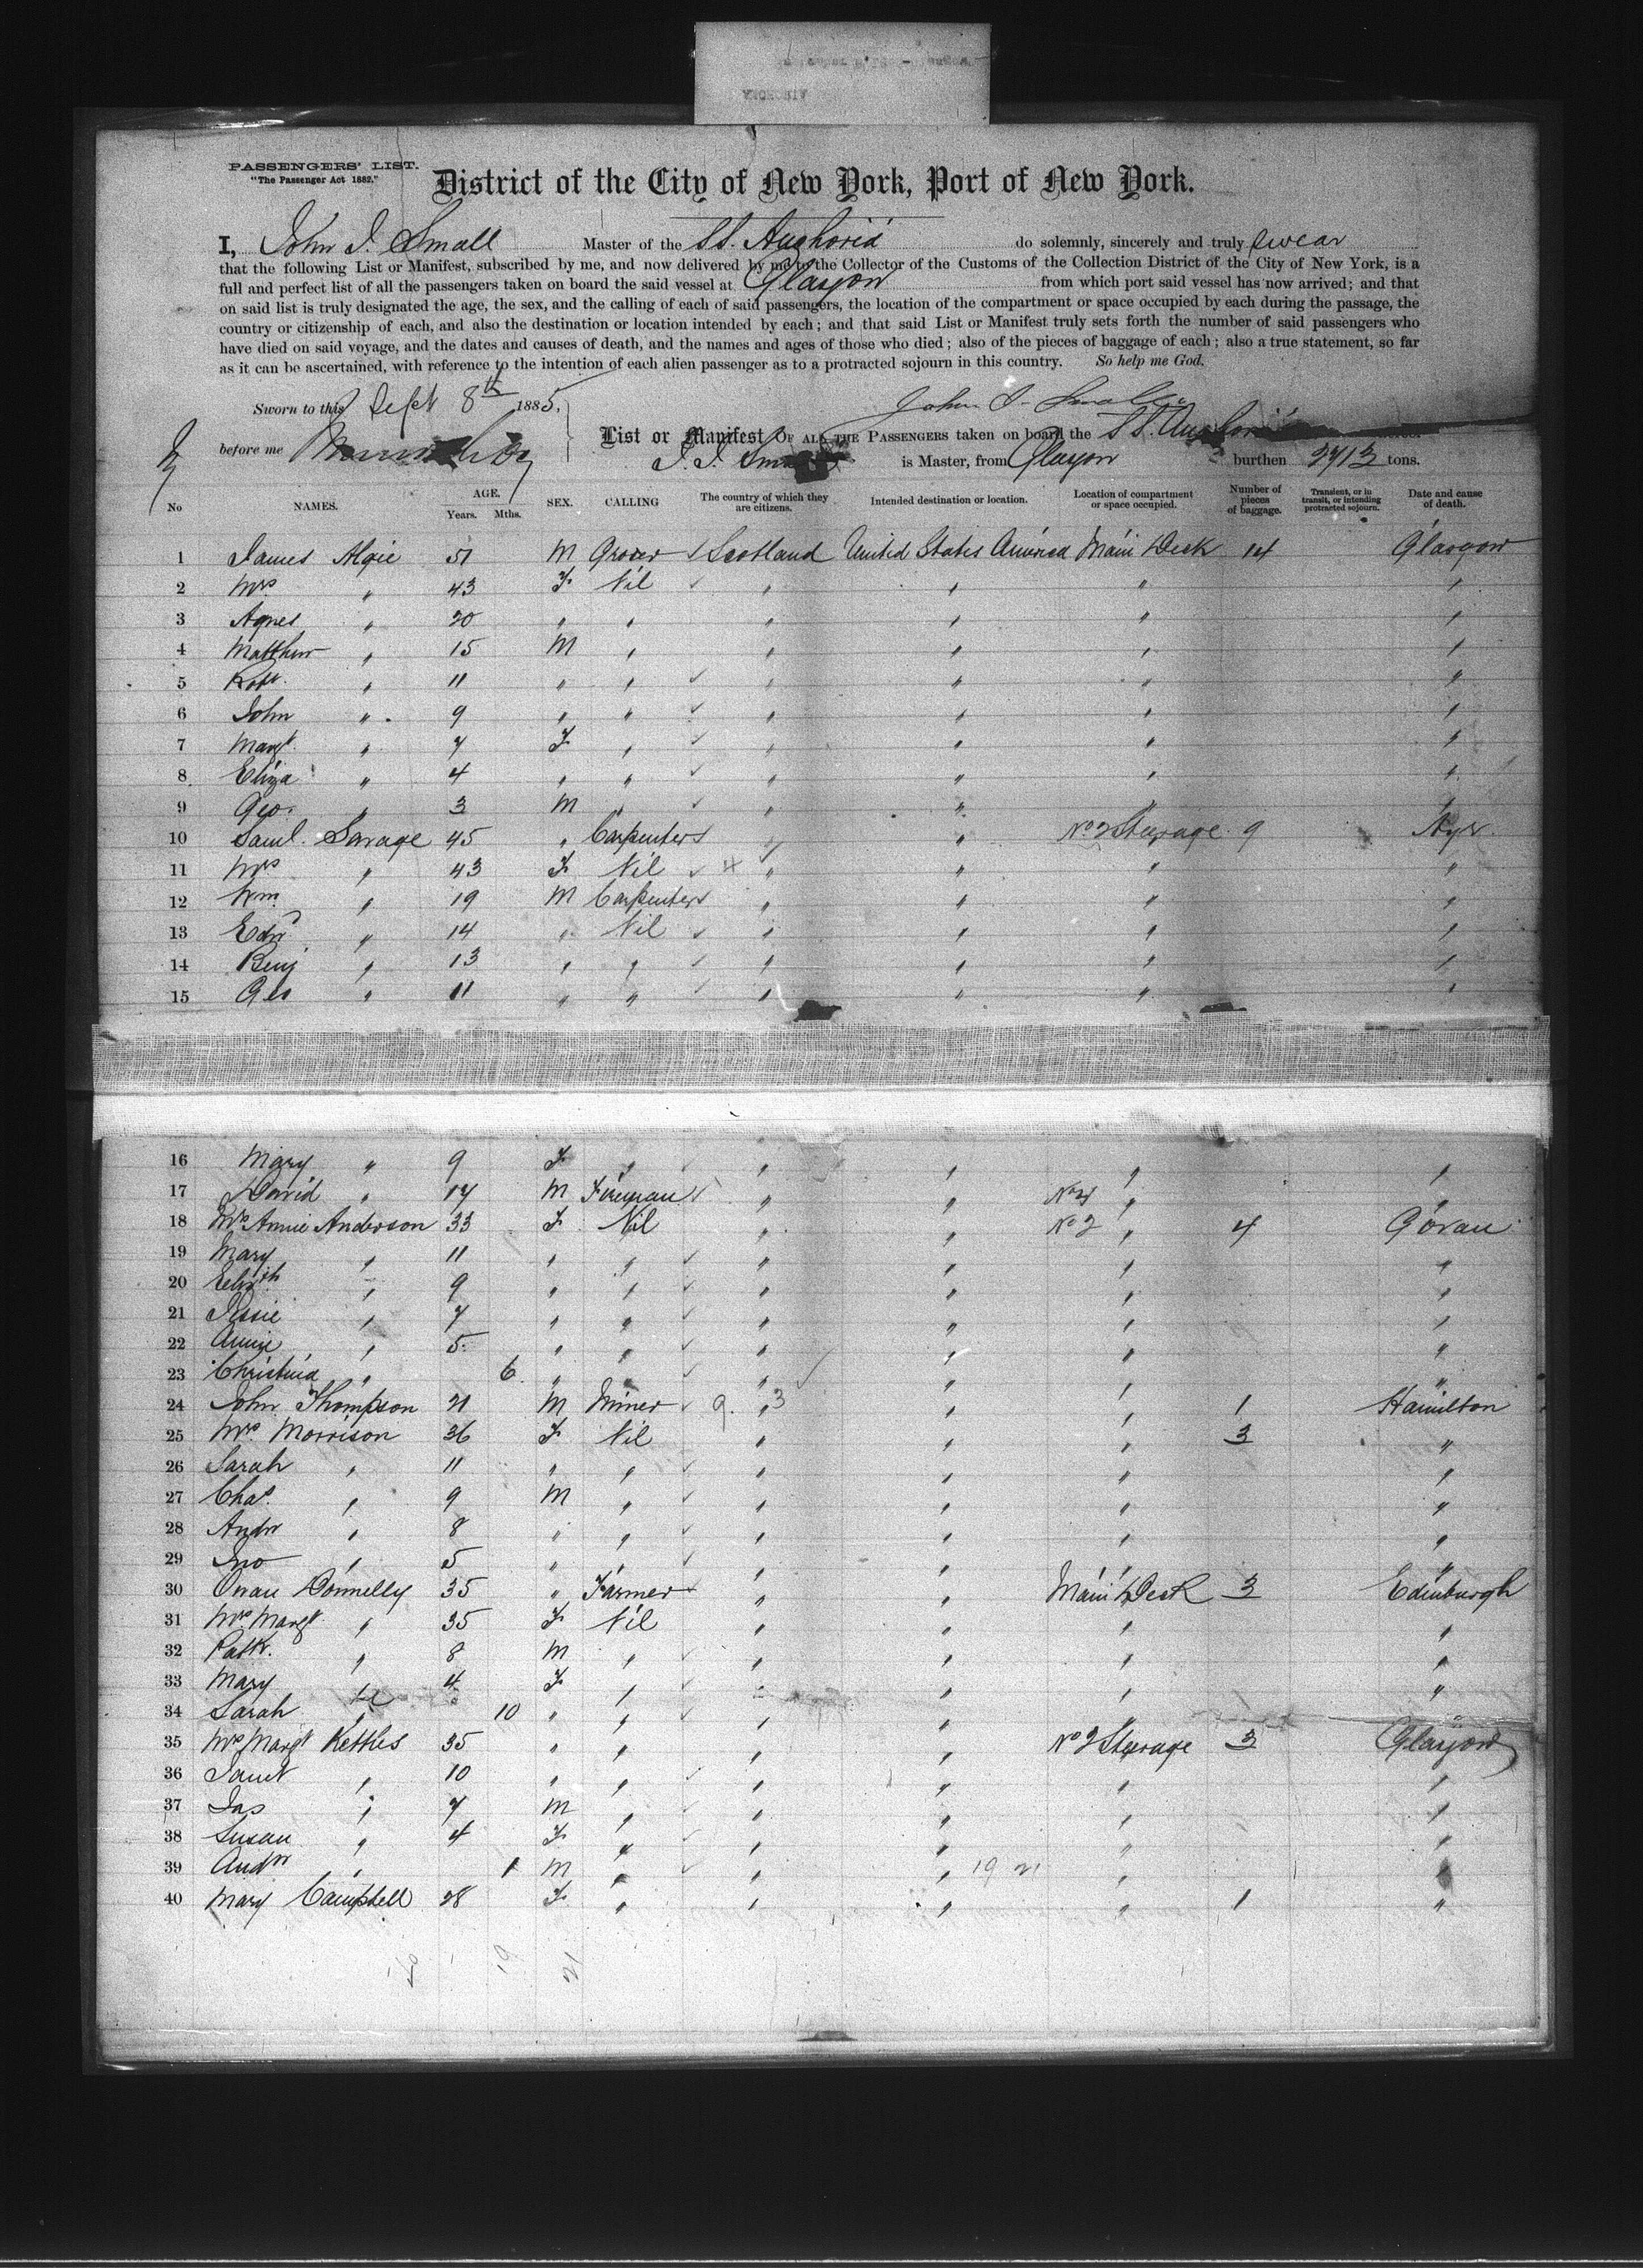 PASSENGERS' LIST.
"The Passenger Act 1882."
District of the City of New York, Port of New York.
I, John I. Small Master of the SS. Anchoria do solemnly, sincerely and truly swear
that the following List or Manifest, subscribed by me, and now delivered by me to the Collector of the Customs of the Collection District of the City of New York, is a
full and perfect list of all the passengers taken on board the said vessel at Glasgow from which port said vessel has now arrived; and that
on said list is truly designated the age, the sex, and the calling of each of said passengers, the location of the compartment or space occupied by each during the passage, the
country or citizenship of each, and also the destination or location intended by each; and that said List or Manifest truly sets forth the number of said passengers who
have died on said voyage, and the dates and causes of death, and the names and ages of those who died; also of the pieces of baggage of each; also a true statement, so far
as it can be ascertained, with reference to the intention of each alien passenger as to a protracted sojourn in this country. So help me God.
Sworn to this Sept 8th 1885, John I. Small
before me List or Manifest OF ALL THE PASSENGERS taken on board the SS. Anchoria
I. I. Small is Master, from Glasgow burthen 2713 tons.
No NAMES. AGE. Years. Mths. SEX. CALLING The country of which they are citizens. Intended destination or location. Location of compartment or space occupied. Number of pieces of baggage. Transient, or in transit, or intending protracted sojourn. Date and cause of death.
1 James Algie 51 M Grocer Scotland United States America Main Deck 14 Glasgow
2 Mrs " 43 F Nil " " " "
3 Agnes " 20 " " " " " "
4 Matthew " 15 M " " " " "
5 Robt. " 11 " " " " " "
6 John " 9 " " " " " "
7 Margt. " 7 F " " " " "
8 Eliza " 4 " " " " " "
9 Geo. " 3 M " " " " "
10 Saml. Savage 45 " Carpenter " " No 2 Steerage 9 Ayr
11 Mrs " 43 F Nil " " " "
12 Wm. " 19 M Carpenter " " " "
13 Edwd " 14 " Nil " " " "
14 Benj " 13 " " " " " "
15 Geo " 11 " " " " " "
16 Mary " 9 F " " " " "
17 David " 17 M Fireman " " No 4 " "
18 Mrs Annie Anderson 33 F Nil " " No 2 " 4 Govan
19 Mary " 11 " " " " " "
20 Elizth " 9 " " " " " "
21 Jessie " 7 " " " " " "
22 Annie " 5 " " " " " "
23 Christina " 6 " " " " " "
24 John Thompson 21 M Miner " " " 1 Hamilton
25 Mrs Morrison 36 F Nil " " " 3 "
26 Sarah " 11 " " " " " "
27 Chas. " 9 M " " " " "
28 Andw " 8 " " " " " "
29 Jno " 5 " " " " " "
30 Owen Donnelly 35 " Farmer " " Main Deck 3 Edinburgh
31 Mrs Margt. " 35 F Nil " " " "
32 Patk. " 8 M " " " " "
33 Mary " 4 F " " " " "
34 Sarah " 10 " " " " " "
35 Mrs Margt Kettles 35 " " " " No 2 Steerage 3 Glasgow
36 Janet " 10 " " " " " "
37 Jas " 7 M " " " " "
38 Susan " 4 F " " " " "
39 Andw " 1 M " " " 19 21 " "
40 Mary Campbell 28 F " " " " 1 "
19 21